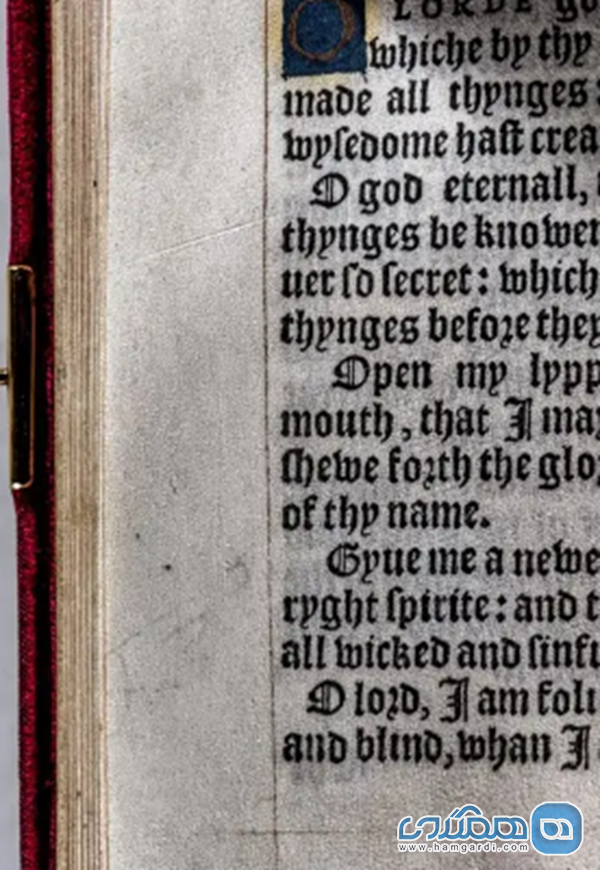 O LORDE go
whiche by thy
made all thynges:
wyſedome haſt crea
O god eternall,
thynges be knowen
uer ſo ſecret: which
thynges befoꝛe they
Open my lypp
mouth, that I may
ſhewe foꝛth the gloꝛ
of thy name.
Gyue me a newe
ryght ſpirite: and t
all wicked and ſinfu
O loꝛd, I am foli
and blind, whan I
همگردی
www.hamgardi.com